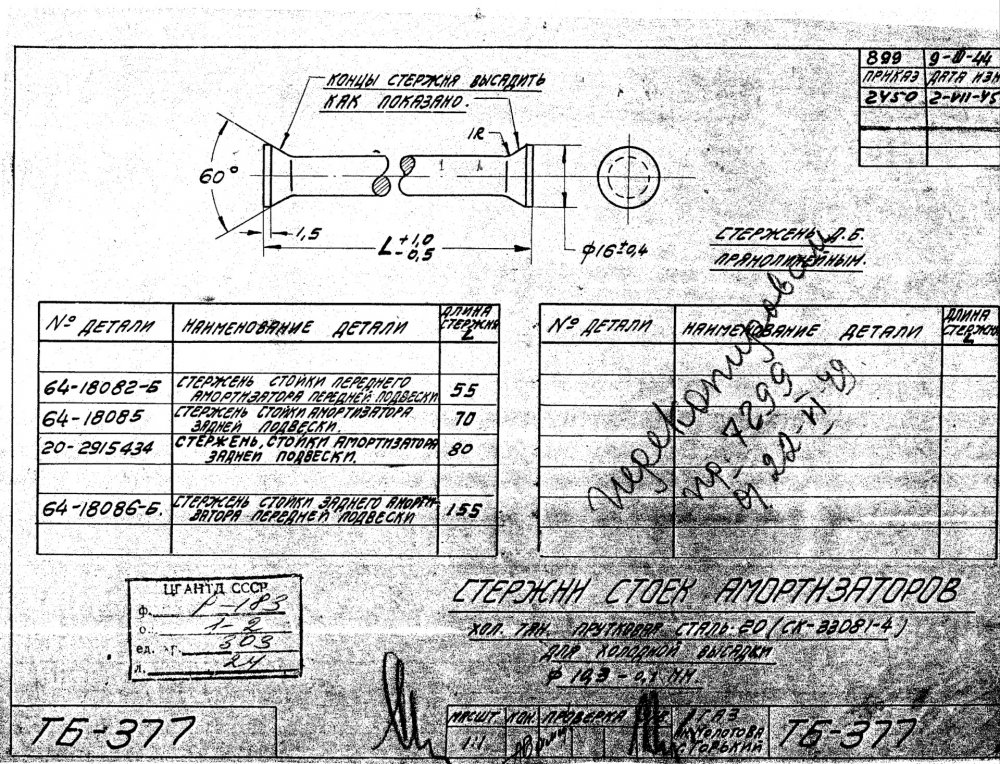 899 9-III-44
ПРИКАЗ ДАТА ИЗМ
2450 2-VII-45
КОНЦЫ СТЕРЖНЯ ВЫСАДИТЬ
КАК ПОКАЗАНО.
1R
60°
1,5
L +1,0 -0,5
ф16±0,4
СТЕРЖЕНЬ Д.Б.
ПРЯМОЛИНЕЙНЫМ.
№ ДЕТАЛИ НАИМЕНОВАНИЕ ДЕТАЛИ ДЛИНА СТЕРЖНЯ L
64-18082-Б СТЕРЖЕНЬ СТОЙКИ ПЕРЕДНЕГО
АМОРТИЗАТОРА ПЕРЕДНЕЙ ПОДВЕСКИ 55
64-18085 СТЕРЖЕНЬ СТОЙКИ АМОРТИЗАТОРА
ЗАДНЕЙ ПОДВЕСКИ. 70
20-2915434 СТЕРЖЕНЬ, СТОЙКИ АМОРТИЗАТОРА
ЗАДНЕЙ ПОДВЕСКИ. 80
64-18086-Б. СТЕРЖЕНЬ СТОЙКИ ЗАДНЕГО АМОРТИ-
ЗАТОРА ПЕРЕДНЕЙ ПОДВЕСКИ 155
№ ДЕТАЛИ НАИМЕНОВАНИЕ ДЕТАЛИ ДЛИНА СТЕРЖНЯ L
перекопирован
пр-7299
от 22-VI-49
ЦГАНТД СССР
ф. Р-183
о. 1-2
ед. хр. 303
л. 24
СТЕРЖНИ СТОЕК АМОРТИЗАТОРОВ
ХОЛ. ТЯН. ПРУТКОВАЯ СТАЛЬ-20 (СК-33081-4)
ДЛЯ ХОЛОДНОЙ ВЫСАДКИ
ММ.
ТБ-377
МАСШТ КОН. ПРОВЕРКА
1:1
ГАЗ
ИМ. МОЛОТОВА
Г. ГОРЬКИЙ
ТБ-377